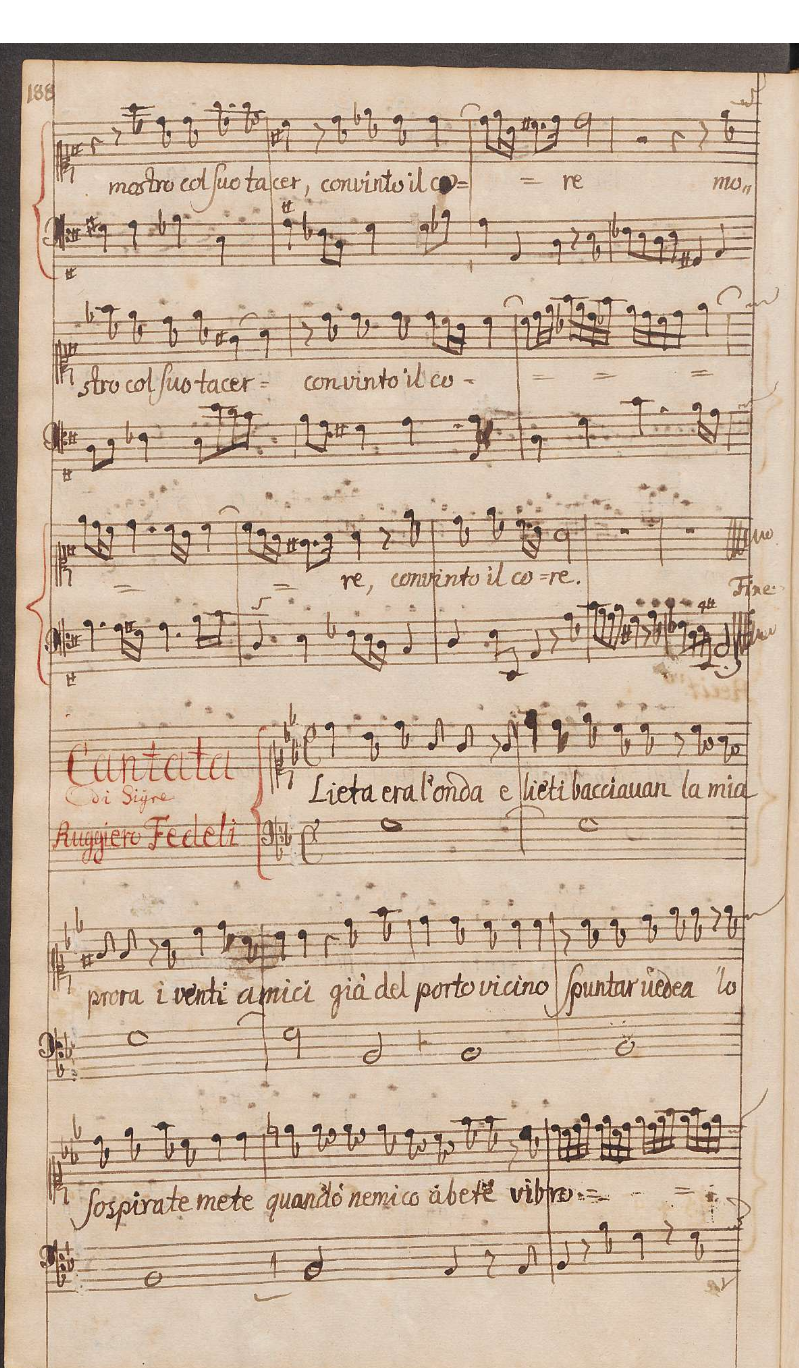 188
mostro col suo tacer, convinto il co= = re mo,,
stro col suo tacer = convinto il co - = = =
= = re, convinto il co =re.
Fine
Cantata
di Sigre
Ruggiero Fedeli
Lieta era l'onda e lieti bacciauan la mia
prora i venti amici già del porto vicino spuntar uedea lo
sospirate mete quando nemico